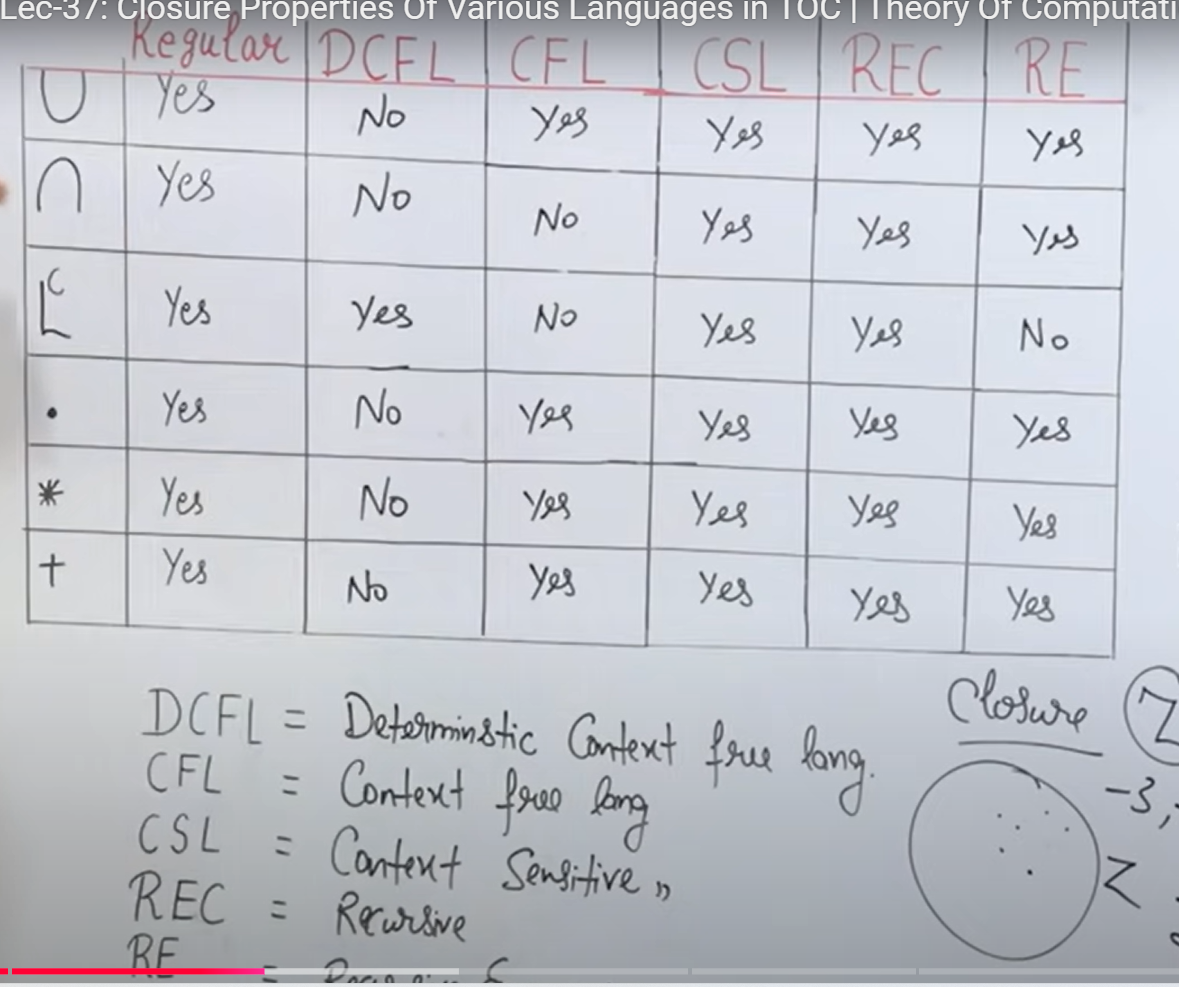 Lec-37: Closure Properties Of Various Languages in TOC | Theory Of Computati
Regular DCFL CFL CSL REC RE
∪ Yes No Yes Yes Yes Yes
∩ Yes No No Yes Yes Yes
L^C Yes Yes No Yes Yes No
• Yes No Yes Yes Yes Yes
* Yes No Yes Yes Yes Yes
+ Yes No Yes Yes Yes Yes
DCFL = Determinstic Context free lang.
CFL = Context free lang
CSL = Context Sensitive "
REC = Recursive
RE =
Closure Z
-3,
Z